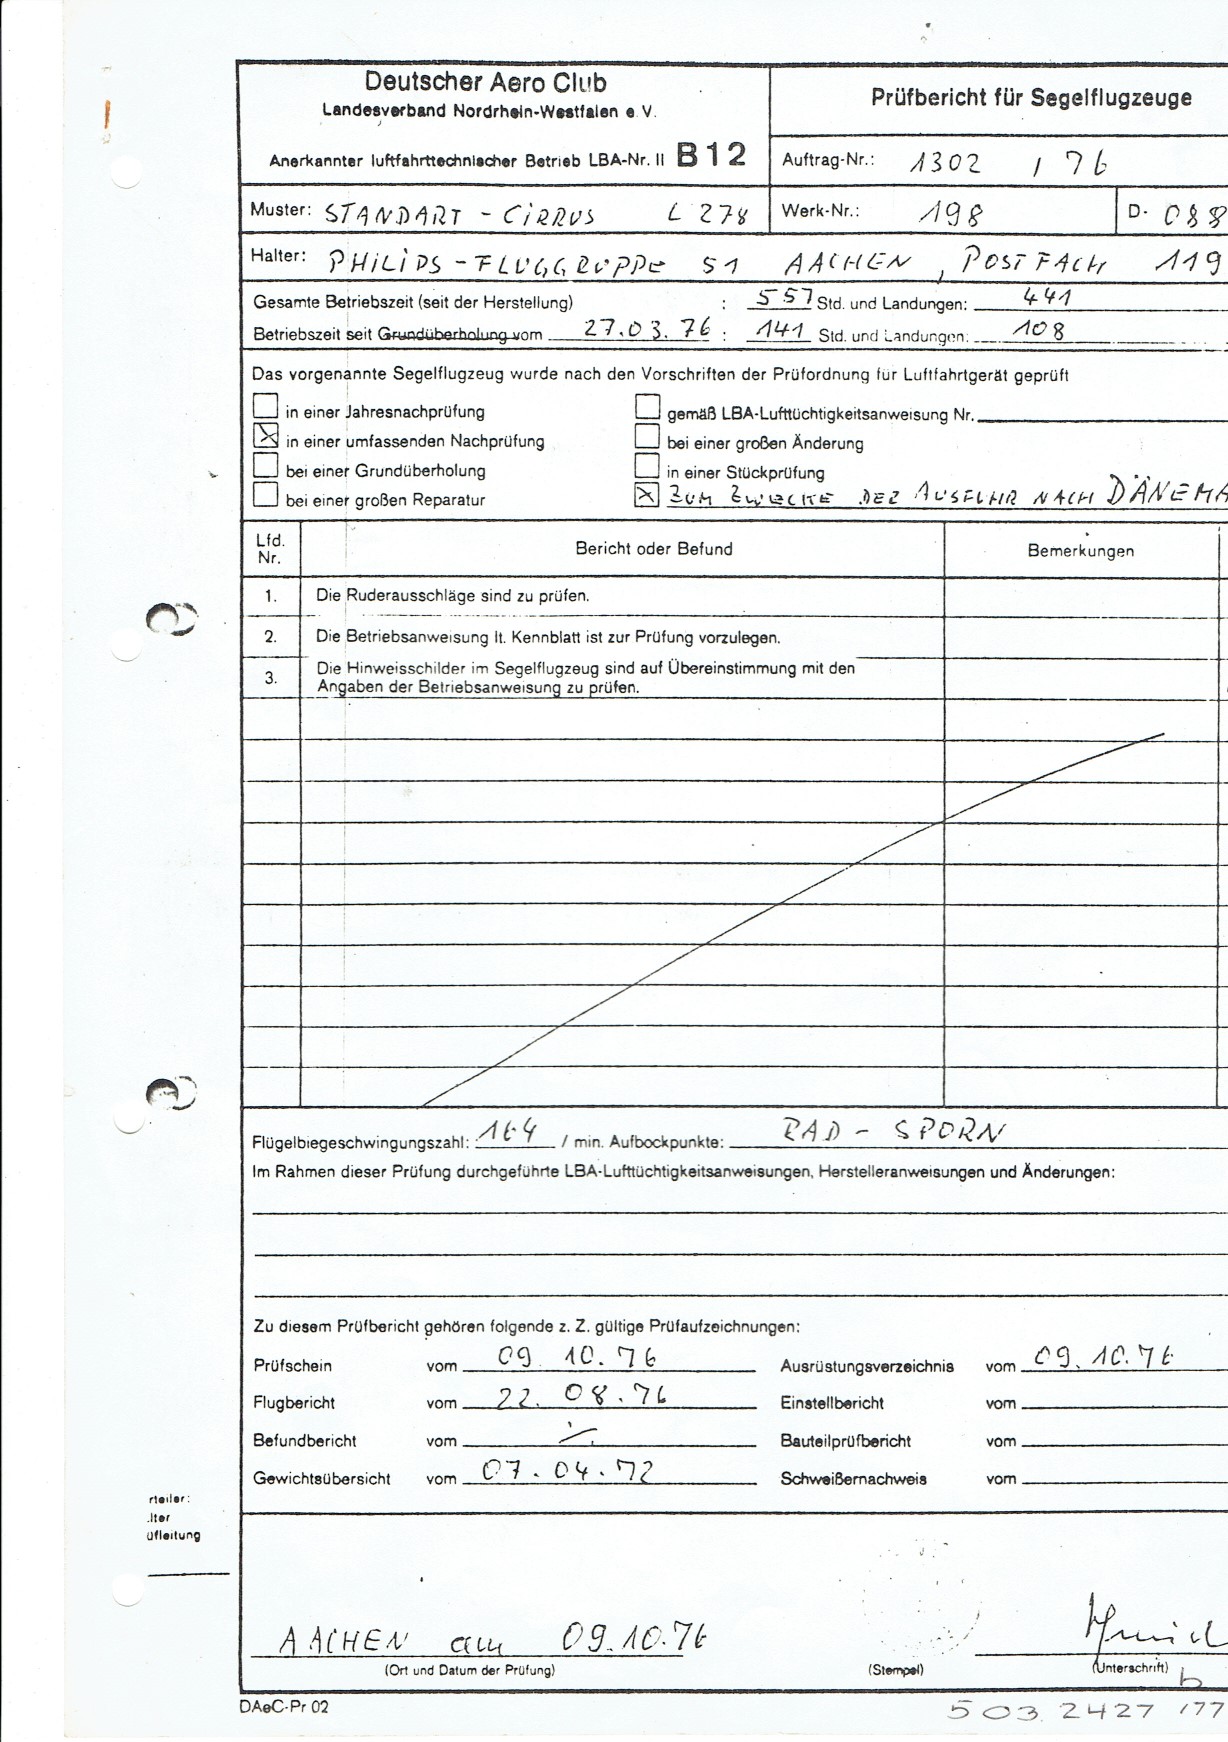 Deutscher Aero Club
Landesverband Nordrhein-Westfalen e.V.
Anerkannter luftfahrttechnischer Betrieb LBA-Nr. II B 12
Prüfbericht für Segelflugzeuge
Auftrag-Nr.: 1302 / 76
Muster: STANDART - CIRRUS L 278 Werk-Nr.: 198 D- 088
Halter: PHILIPS - FLUGGRUPPE 51 AACHEN, POSTFACH 119
Gesamte Betriebszeit (seit der Herstellung) : 557 Std. und Landungen: 441
Betriebszeit seit Grundüberholung vom 27.03.76 : 141 Std. und Landungen: 108
Das vorgenannte Segelflugzeug wurde nach den Vorschriften der Prüfordnung für Luftfahrtgerät geprüft
in einer Jahresnachprüfung gemäß LBA-Lufttüchtigkeitsanweisung Nr.
in einer umfassenden Nachprüfung bei einer großen Änderung
bei einer Grundüberholung in einer Stückprüfung
bei einer großen Reparatur ZUM ZWECKE DER AUSFUHR NACH DÄNEMA
Lfd. Nr. Bericht oder Befund Bemerkungen
1. Die Ruderausschläge sind zu prüfen.
2. Die Betriebsanweisung lt. Kennblatt ist zur Prüfung vorzulegen.
3. Die Hinweisschilder im Segelflugzeug sind auf Übereinstimmung mit den
Angaben der Betriebsanweisung zu prüfen.
Flügelbiegeschwingungszahl: 164 / min. Aufbockpunkte: RAD - SPORN
Im Rahmen dieser Prüfung durchgeführte LBA-Lufttüchtigkeitsanweisungen, Herstelleranweisungen und Änderungen:
Zu diesem Prüfbericht gehören folgende z. Z. gültige Prüfaufzeichnungen:
Prüfschein vom 09.10.76 Ausrüstungsverzeichnis vom 09.10.76
Flugbericht vom 22.08.76 Einstellbericht vom
Befundbericht vom Bauteilprüfbericht vom
Gewichtsübersicht vom 07.04.72 Schweißernachweis vom
rteiler:
.lter
üfleitung
AACHEN am 09.10.76
(Ort und Datum der Prüfung) (Stempel) (Unterschrift)
DAeC-Pr 02
503 2427 177